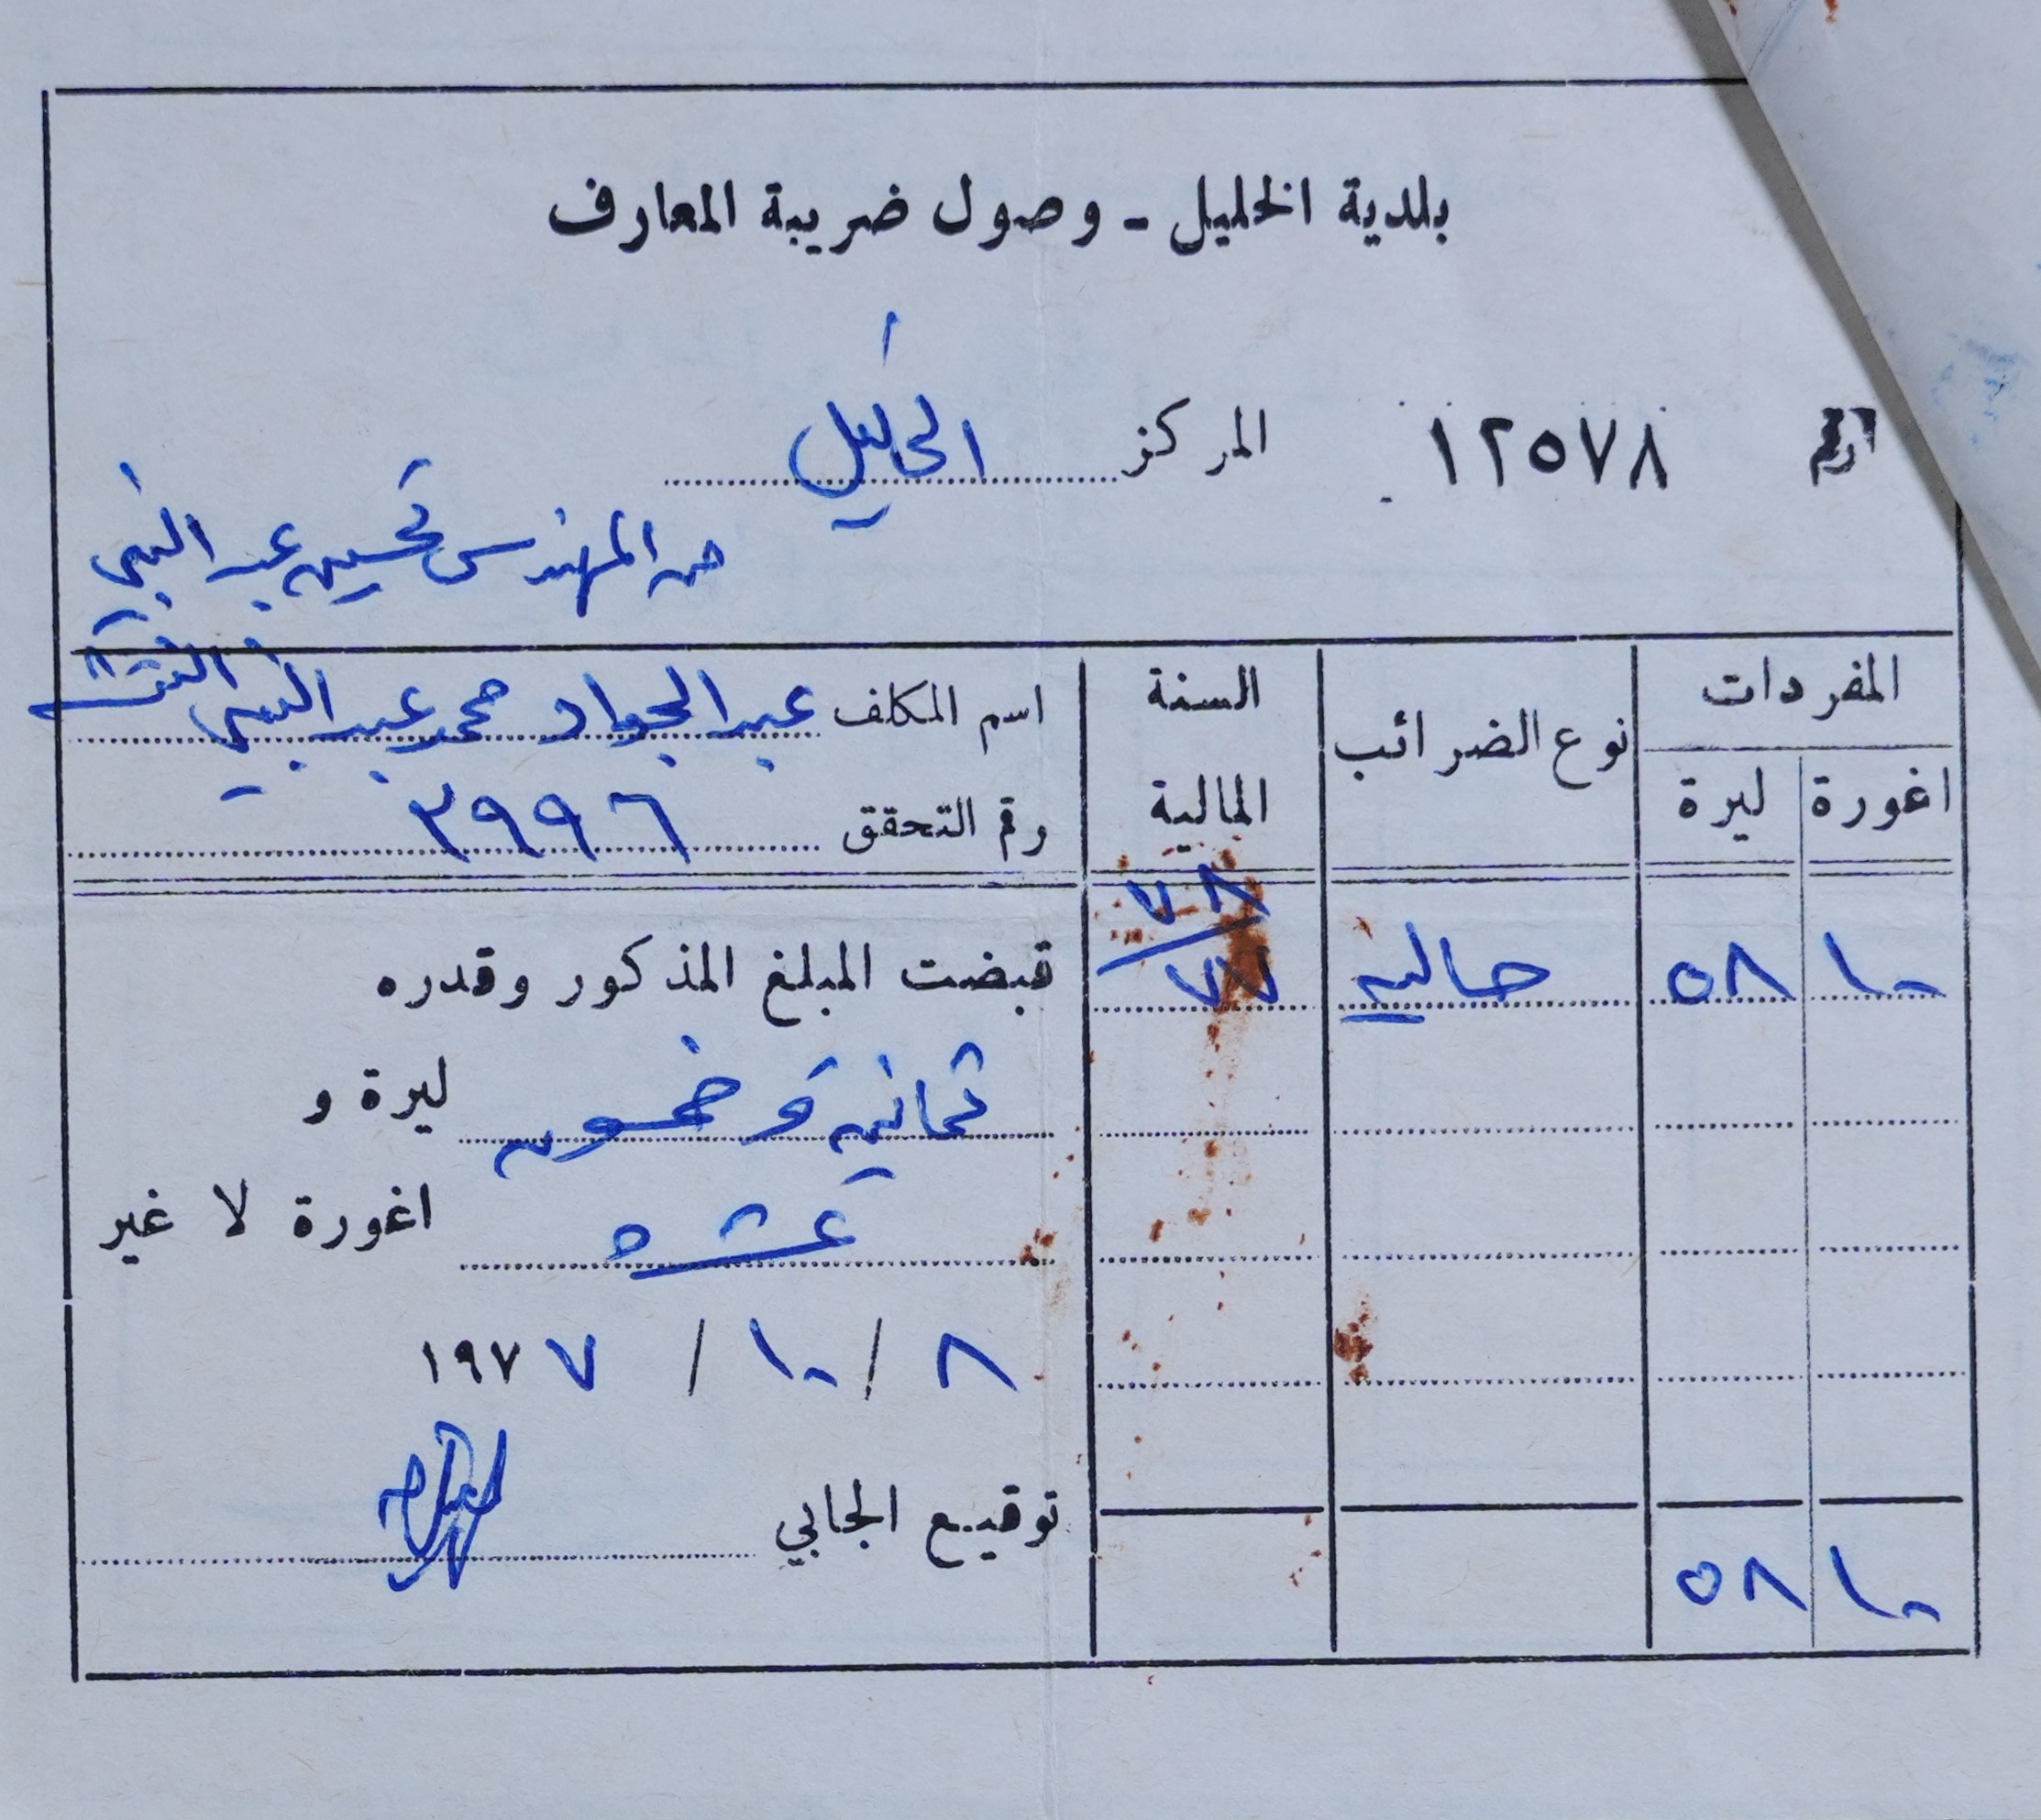 بلدية الخليل - وصول ضريبة المعارف
الرقم ١٢٥٧٨ المركز الخليل
من المهندس تحسين عبد النبي
المفردات
اغورة ليرة نوع الضرائب السنة المالية
اسم المكلف عبد الجواد محمد عبد النبي النتشة
رقم التحقق ٣٩٩٦
١٠ ٥٨ حاليه ٧٨/٧٧
قبضت المبلغ المذكور وقدره
ثمانية وخمسون ليرة و
عشره اغورة لا غير
٨ / ١٠ / ١٩٧٧
توقيع الجابي
١٠ ٥٨